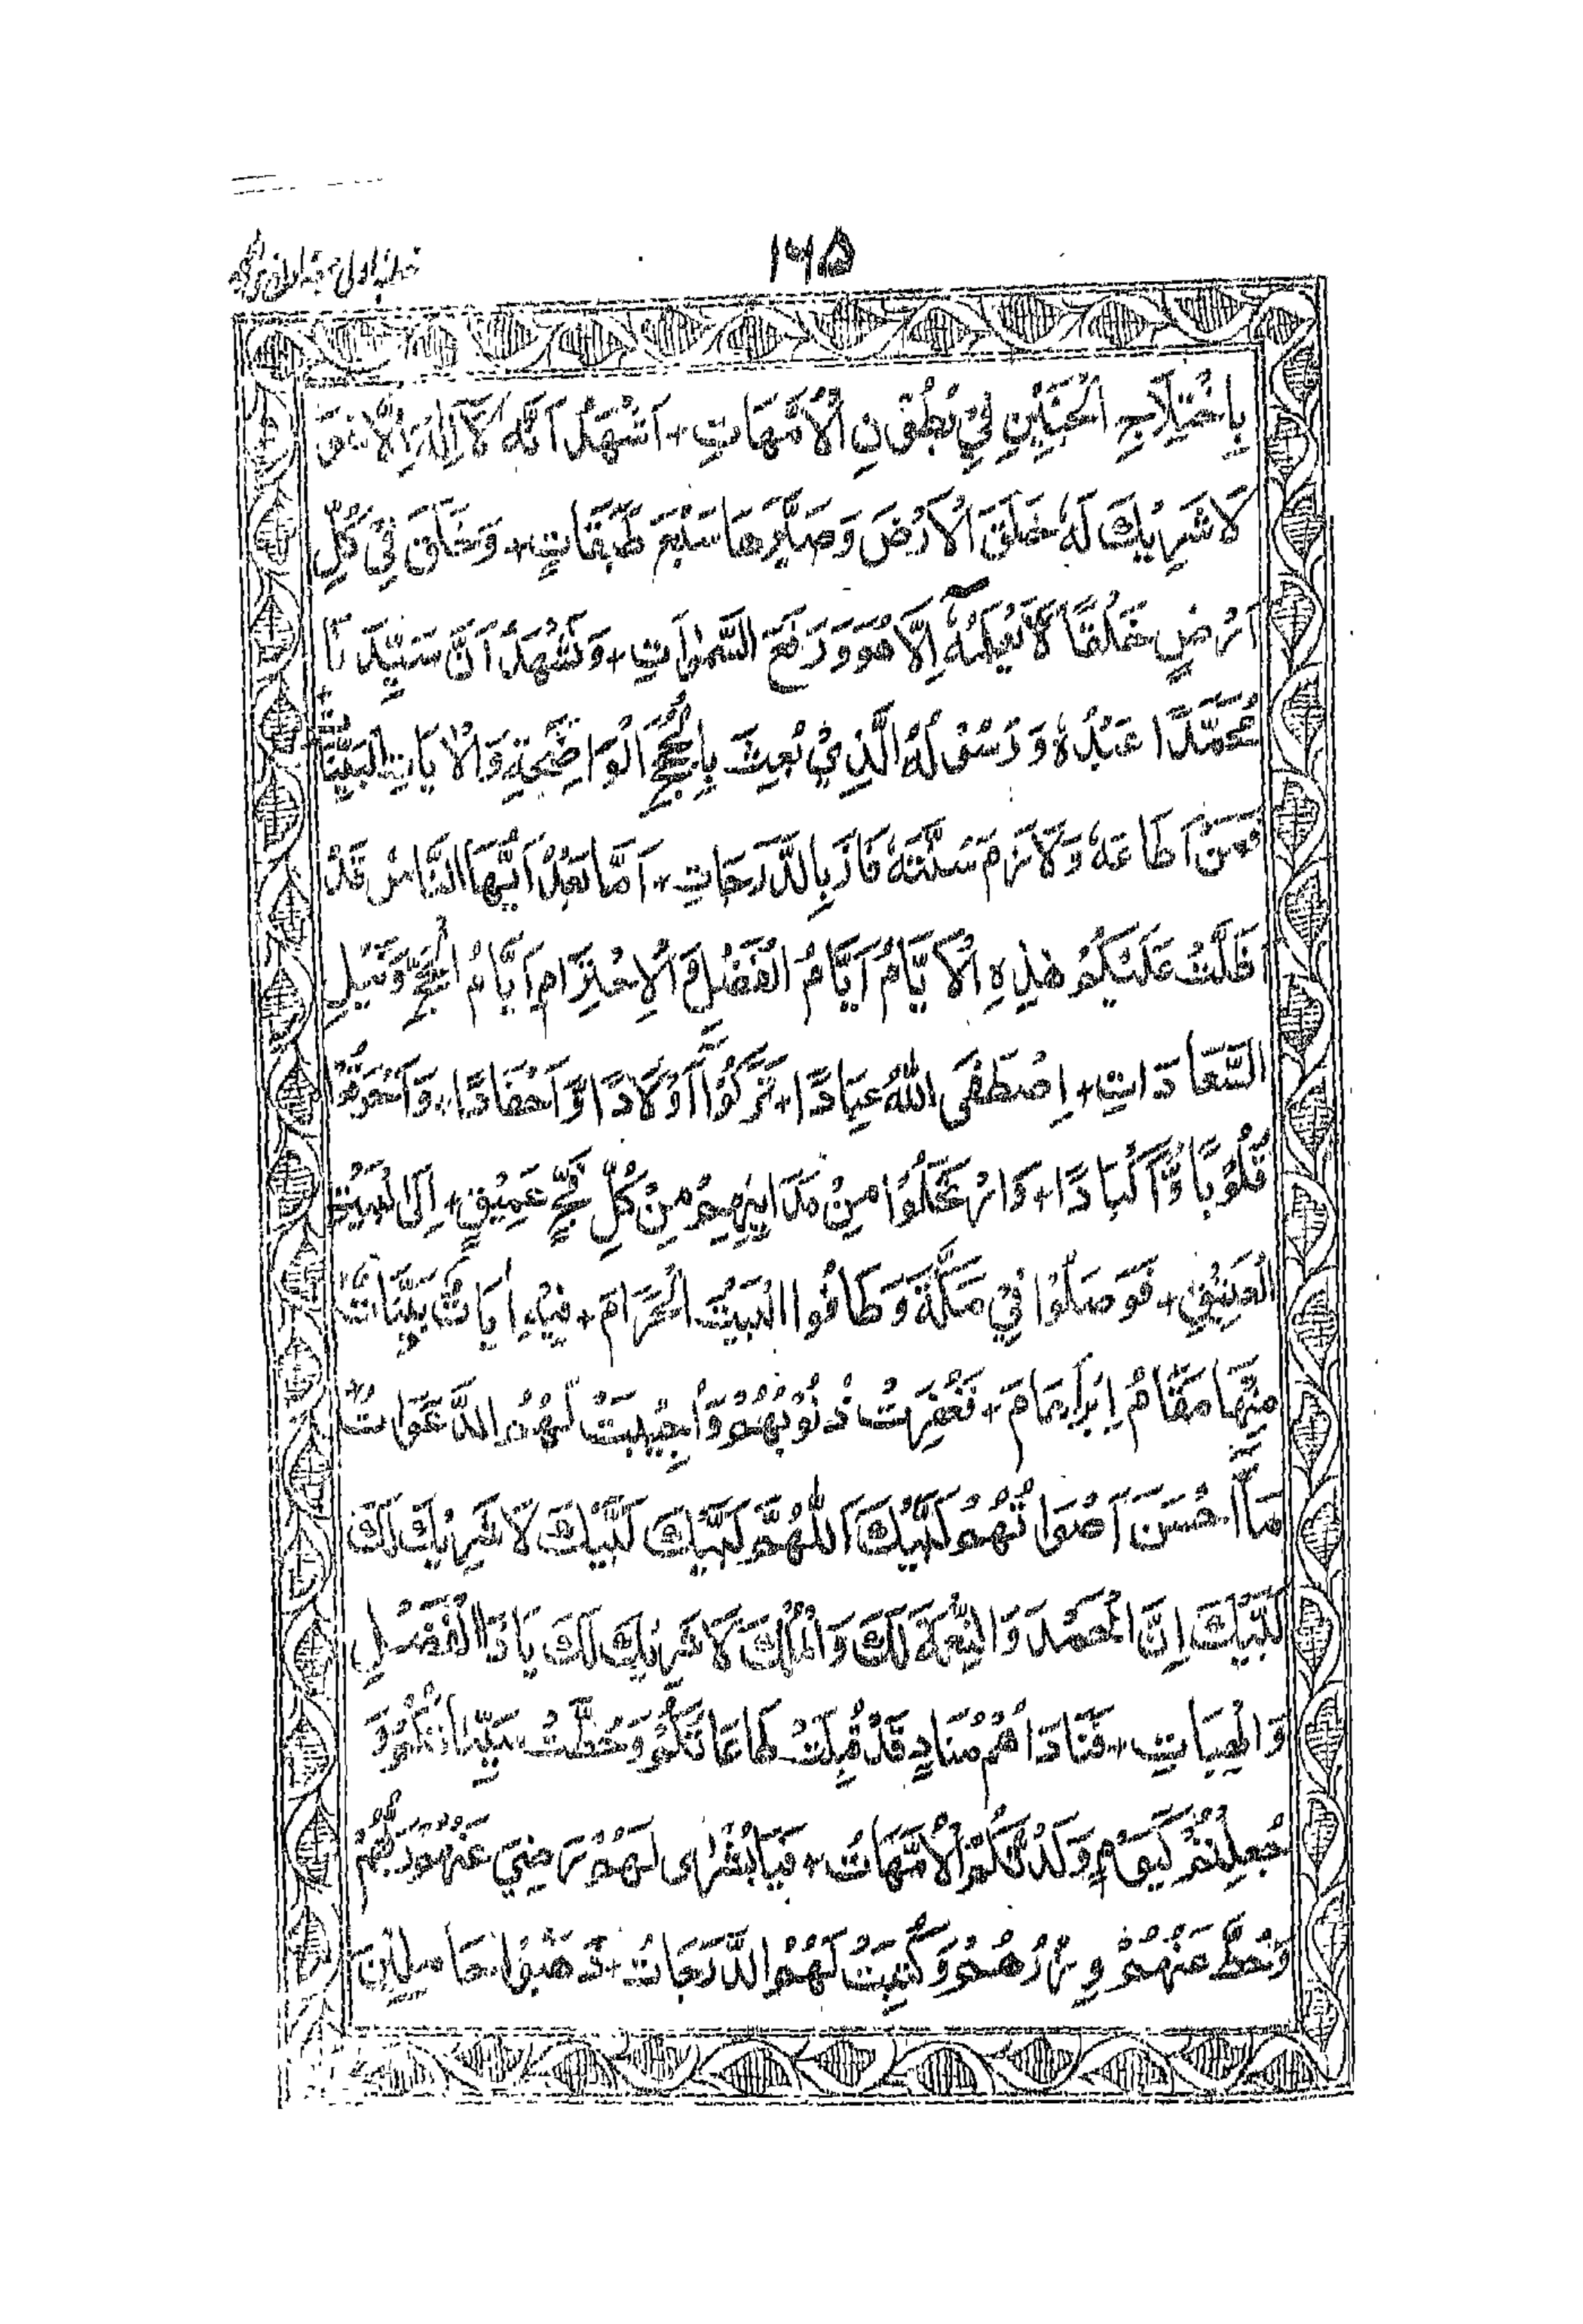 ۱۶۵
بِاخْتِلَاجِ الْجَنِيْنِ فِيْ بُطُوْنِ الْاُمَّهَاتِ + اَشْهَدُ اَنَّهٗ لَآ اِلٰهَ اِلَّا هُوَ
لَا شَرِيْكَ لَهٗ خَلَقَ الْاَرْضَ وَصَيَّرَهَا سَبْعَ طَبَقَاتٍ + وَخَلَقَ فِيْ كُلِّ
اَرْضٍ خَلْقًا لَّا يَعْلَمُهٗٓ اِلَّا هُوَ وَرَفَعَ السَّمٰوَاتِ + وَنَشْهَدُ اَنَّ سَيِّدَنَا
مُحَمَّدًا عَبْدُهٗ وَرَسُوْلُهُ الَّذِيْ بُعِثَ بِالْحُجَجِ الْوَاضِحَةِ وَالْاٰيَاتِ الْبَيِّنَاتِ +
فَمَنْ اَطَاعَهٗ وَلَازَمَ سُنَّتَهٗ فَازَ بِالدَّرَجَاتِ + اَمَّا بَعْدُ اَيُّهَا النَّاسُ قَدْ
اَظَلَّتْ عَلَيْكُمْ هٰذِهِ الْاَيَّامُ اَيَّامُ الْفَضْلِ وَالْاِحْتِرَامِ اَيَّامُ الْحَجِّ وَنَيْلِ
السَّعَادَاتِ + اِصْطَفَى اللّٰهُ عِبَادًا + تَرَكُوْٓا اَوْلَادًا وَّاَحْفَادًا + وَاَحْرَقُوْا
قُلُوْبًا وَّاَكْبَادًا + وَارْتَحَلُوْا مِنْ مَدَايِنِهِمْ مِنْ كُلِّ فَجٍّ عَمِيْقٍ + اِلَى الْبَيْتِ
الْعَتِيْقِ + فَوَصَلُوْا فِيْ مَكَّةَ وَطَافُوا الْبَيْتَ الْحَرَامَ + فِيْهِ اٰيَاتٌ بَيِّنَاتٌ
مِنْهَا مَقَامُ اِبْرَاهَامَ + فَغُفِرَتْ ذُنُوْبُهُمْ وَاُجِيْبَتْ لَهُمُ الدَّعَوَاتُ +
مَآ اَحْسَنَ اَصْوَاتُهُمْ لَبَّيْكَ اَللّٰهُمَّ لَبَّيْكَ لَبَّيْكَ لَا شَرِيْكَ لَكَ
لَبَّيْكَ اِنَّ الْحَمْدَ وَالنِّعْمَةَ لَكَ وَالْمُلْكَ لَا شَرِيْكَ لَكَ يَا ذَا الْفَضْلِ
وَالْهِبَاتِ + فَنَادَاهُمْ مُنَادٍ قَدْ قُبِلَتْ طَاعَاتُكُمْ وَحُطَّتْ سَيِّئَاتُكُمْ وَ
جُعِلْتُمْ كَيَوْمٍ وَلَدَتْكُمُ الْاُمَّهَاتُ + فَيَا بُشْرٰى لَهُمْ رَضِيَ عَنْهُمْ رَبُّهُمْ
وَحُطَّ عَنْهُمْ وِزْرُهُمْ وَكُتِبَتْ لَهُمُ الدَّرَجَاتُ + ذَهَبُوْا حَامِلِيْنَ